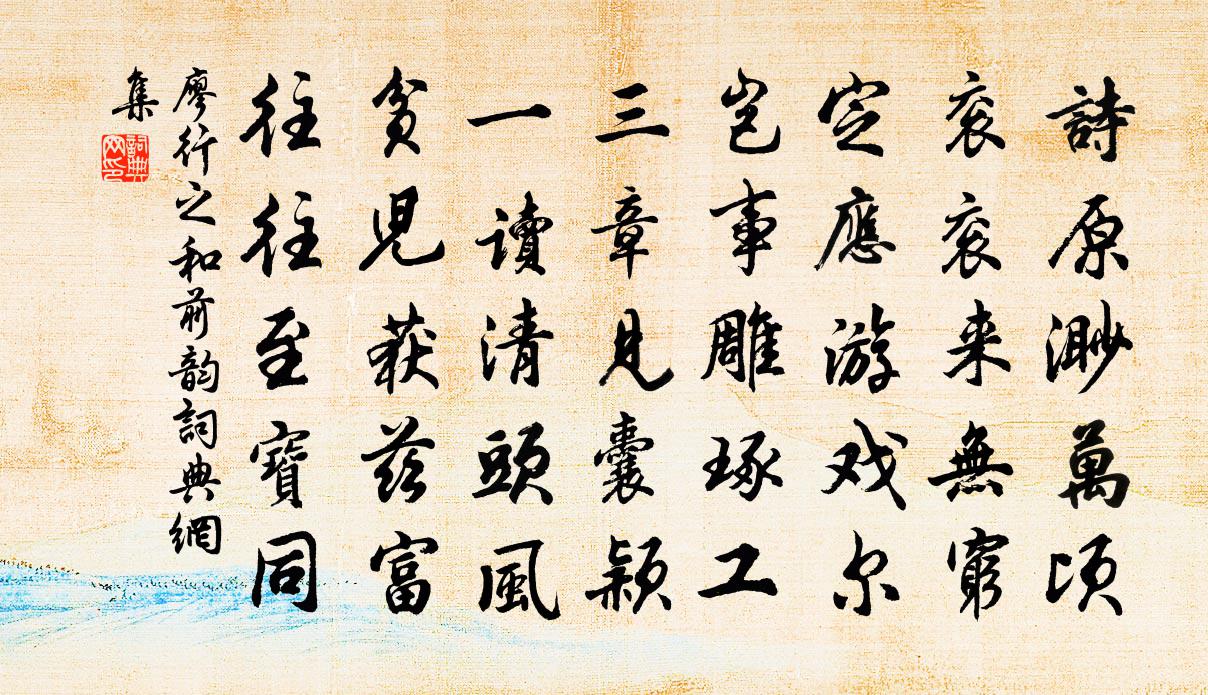 詩原渺萬頃
衮衮来無窮
定應游戏尔
岂事雕琢工
三章見囊颖
一讀清頭風
贫児获兹富
往往至寶同
廖行之和前韵詞典網
集
詞典網印